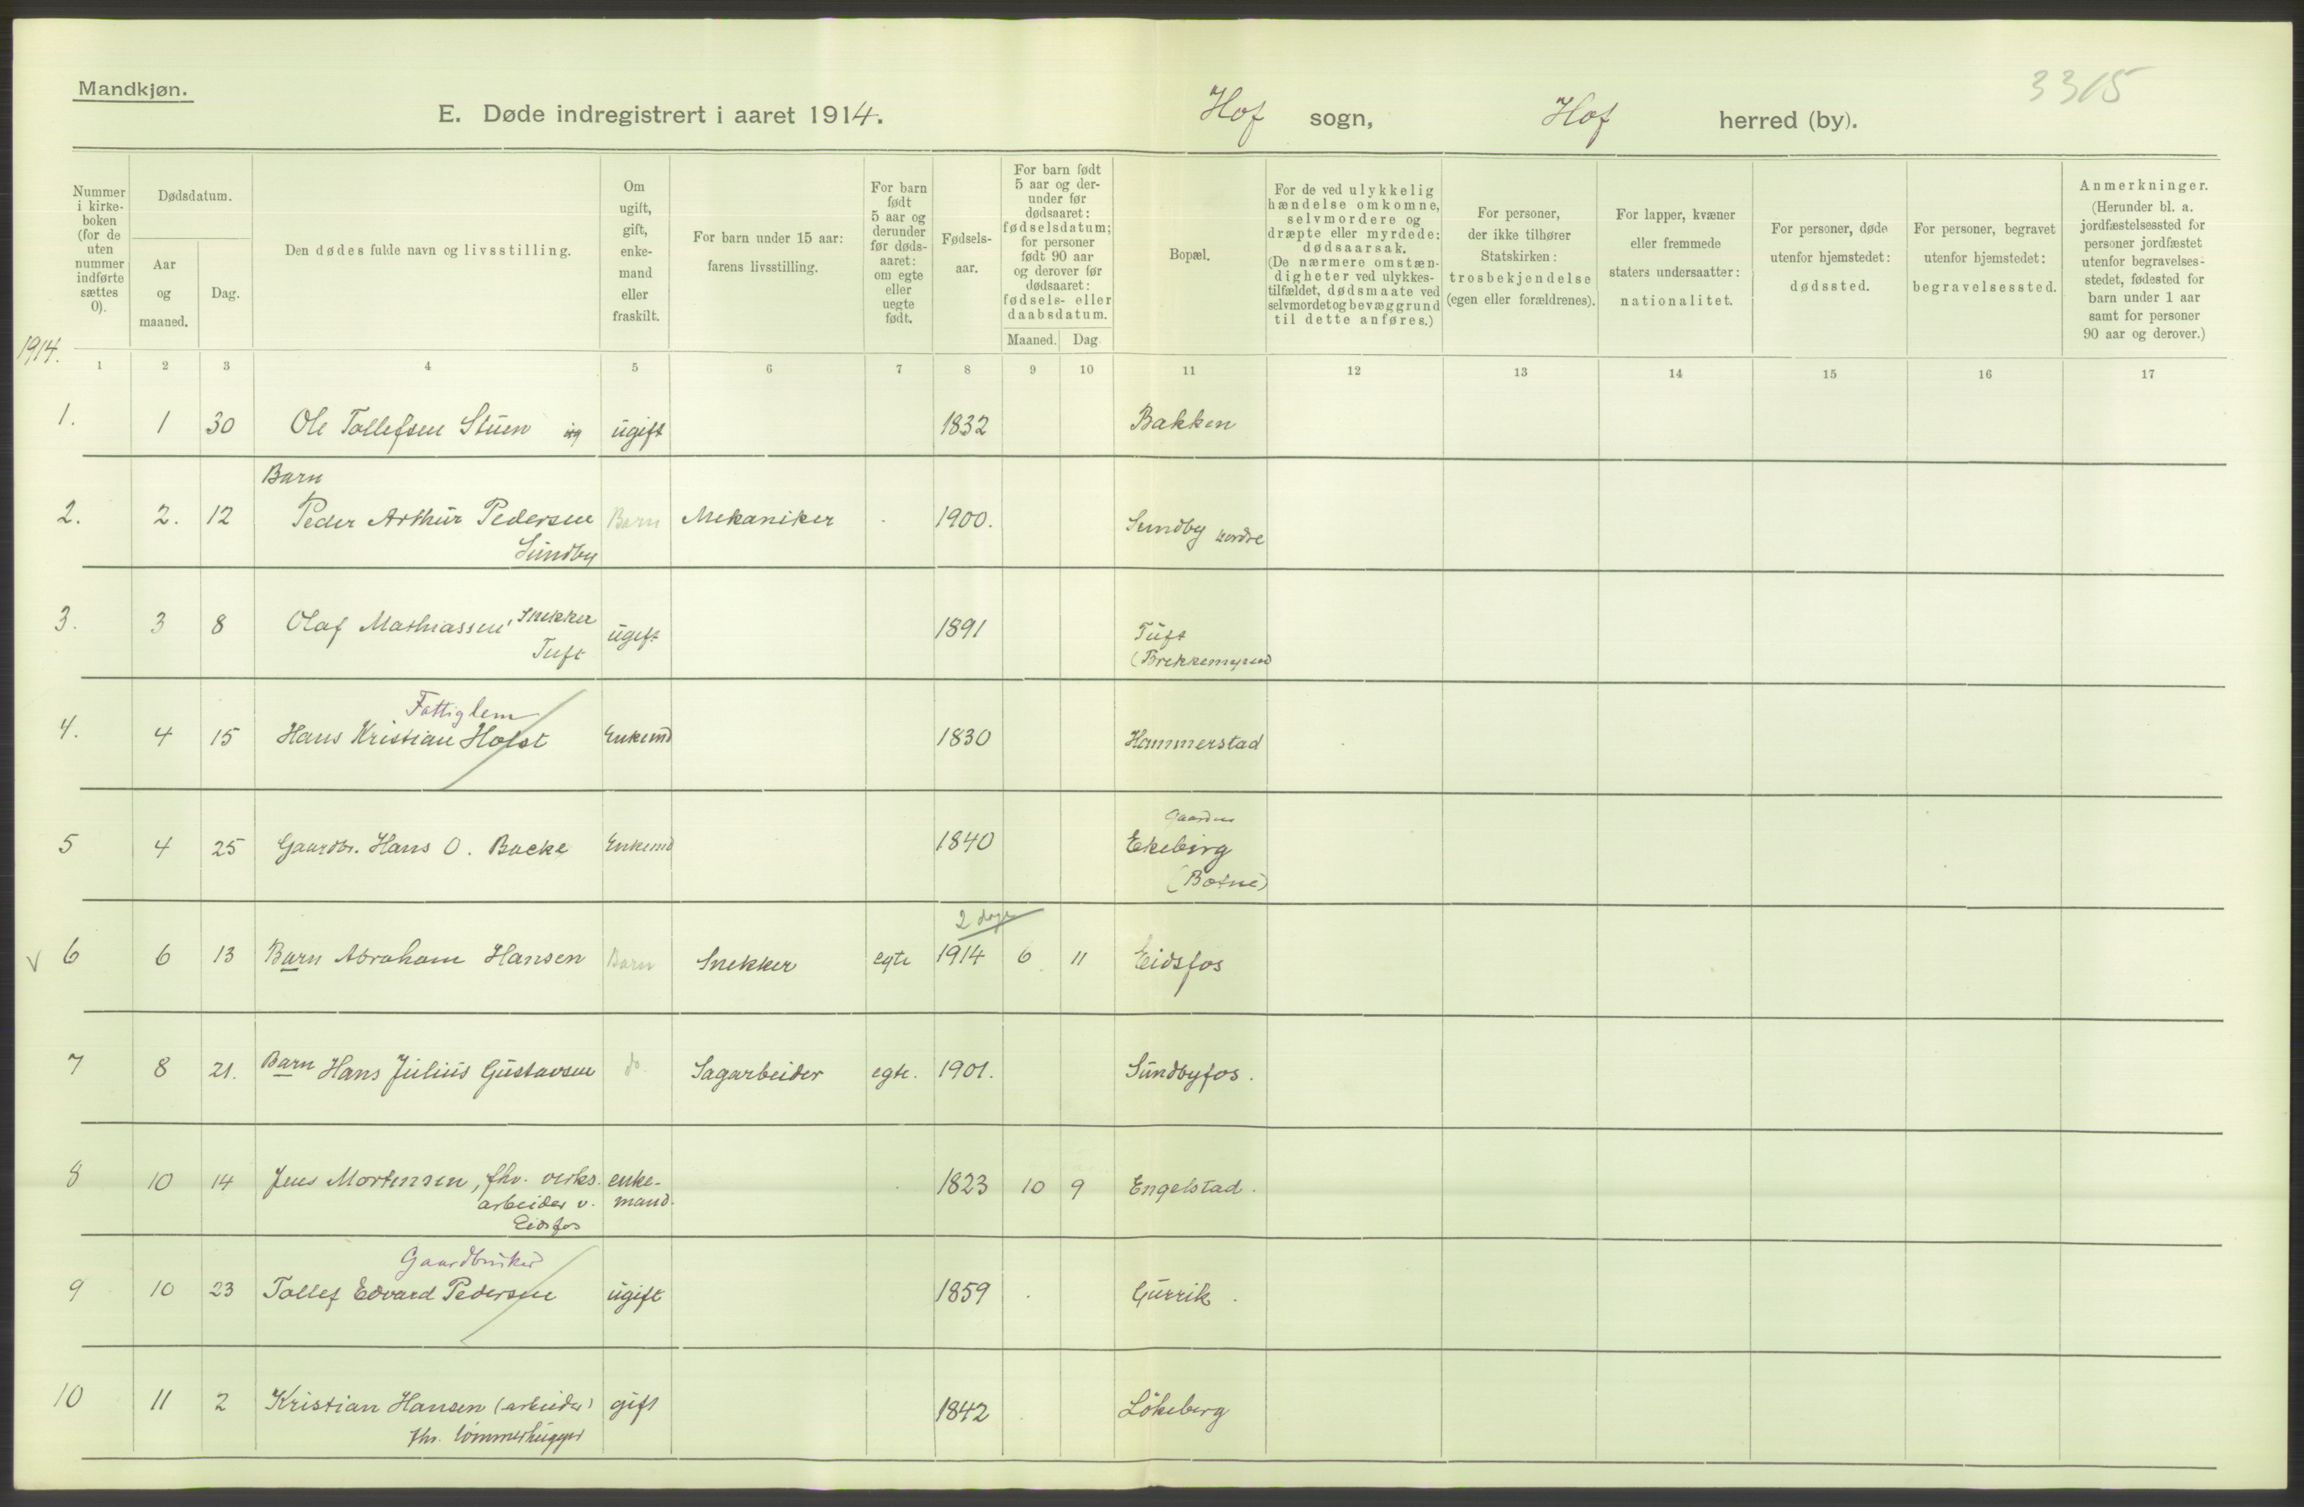 Mandkjøn.
E. Døde indregistrert i aaret 1914.
Hof sogn, Hof herred (by).
3315
Nummer i kirke-boken (for de uten nummer indførte sættes 0).
Dødsdatum.
Aar og maaned.
Dag.
Den dødes fulde navn og livsstilling.
Om ugift, gift, enke-mand eller fraskilt.
For barn under 15 aar: farens livsstilling.
For barn født 5 aar og derunder før døds-aaret: om egte eller uegte født.
Fødsels-aar.
For barn født 5 aar og der-under før dødsaaret: fødselsdatum; for personer født 90 aar og derover før dødsaaret: fødsels- eller daabsdatum.
Maaned.
Dag
Bopæl.
For de ved ulykkelig hændelse omkomne, selvmordere og dræpte eller myrdede: dødsaarsak. (De nærmere omstæn-digheter ved ulykkes-tilfældet, dødsmaate ved selvmordet og bevæggrund til dette anføres.)
For personer, der ikke tilhører Statskirken: trosbekjendelse (egen eller forældrenes).
For lapper, kvæner eller fremmede staters undersaatter: nationalitet.
For personer, døde utenfor hjemstedet: dødssted.
For personer, begravet utenfor hjemstedet: begravelsessted.
Anmerkninger. (Herunder bl. a. jordfæstelsessted for personer jordfæstet utenfor begravelses-stedet, fødested for barn under 1 aar samt for personer 90 aar og derover.)
1914.
1 2 3 4 5 6 7 8 9 10 11 12 13 14 15 16 17
1. 1 30 Ole Tollefsen Stuen ugift 1832 Bakken
Barn
2. 2. 12 Peder Arthur Pedersen Barn Mekaniker 1900. Sundby nordre
Sundby
3. 3 8 Olaf Mathiassen, Snekker ugift 1891 Tuft
Tuft (Brekkemyren)
Fattiglem
4. 4 15 Hans Kristian Holst Enkemd 1830 Hammerstad
Gaarden
5 4 25 Gaardbr. Hans O. Backe Enkemd 1840 Ekeberg
(Botne)
2 dage
v 6 6 13 Barn Abraham Hansen Barn Snekker egte 1914 6 11 Eidsfos
7 8 21. Barn Hans Julius Gustavsen do. Sagarbeider egte. 1901. Sundbyfos.
8 10 14 Jens Mortensen, fhv. verks- enke- 1823 10 9 Engelstad.
arbeider v. mand.
Eidsfos
Gaardbruker
9 10 23 Tollef Edvard Pedersen ugift 1859 Gurrik.
10 11 2 Kristian Hansen (arbeider) gift 1842 Løkeberg
fhv. tømmerhugger